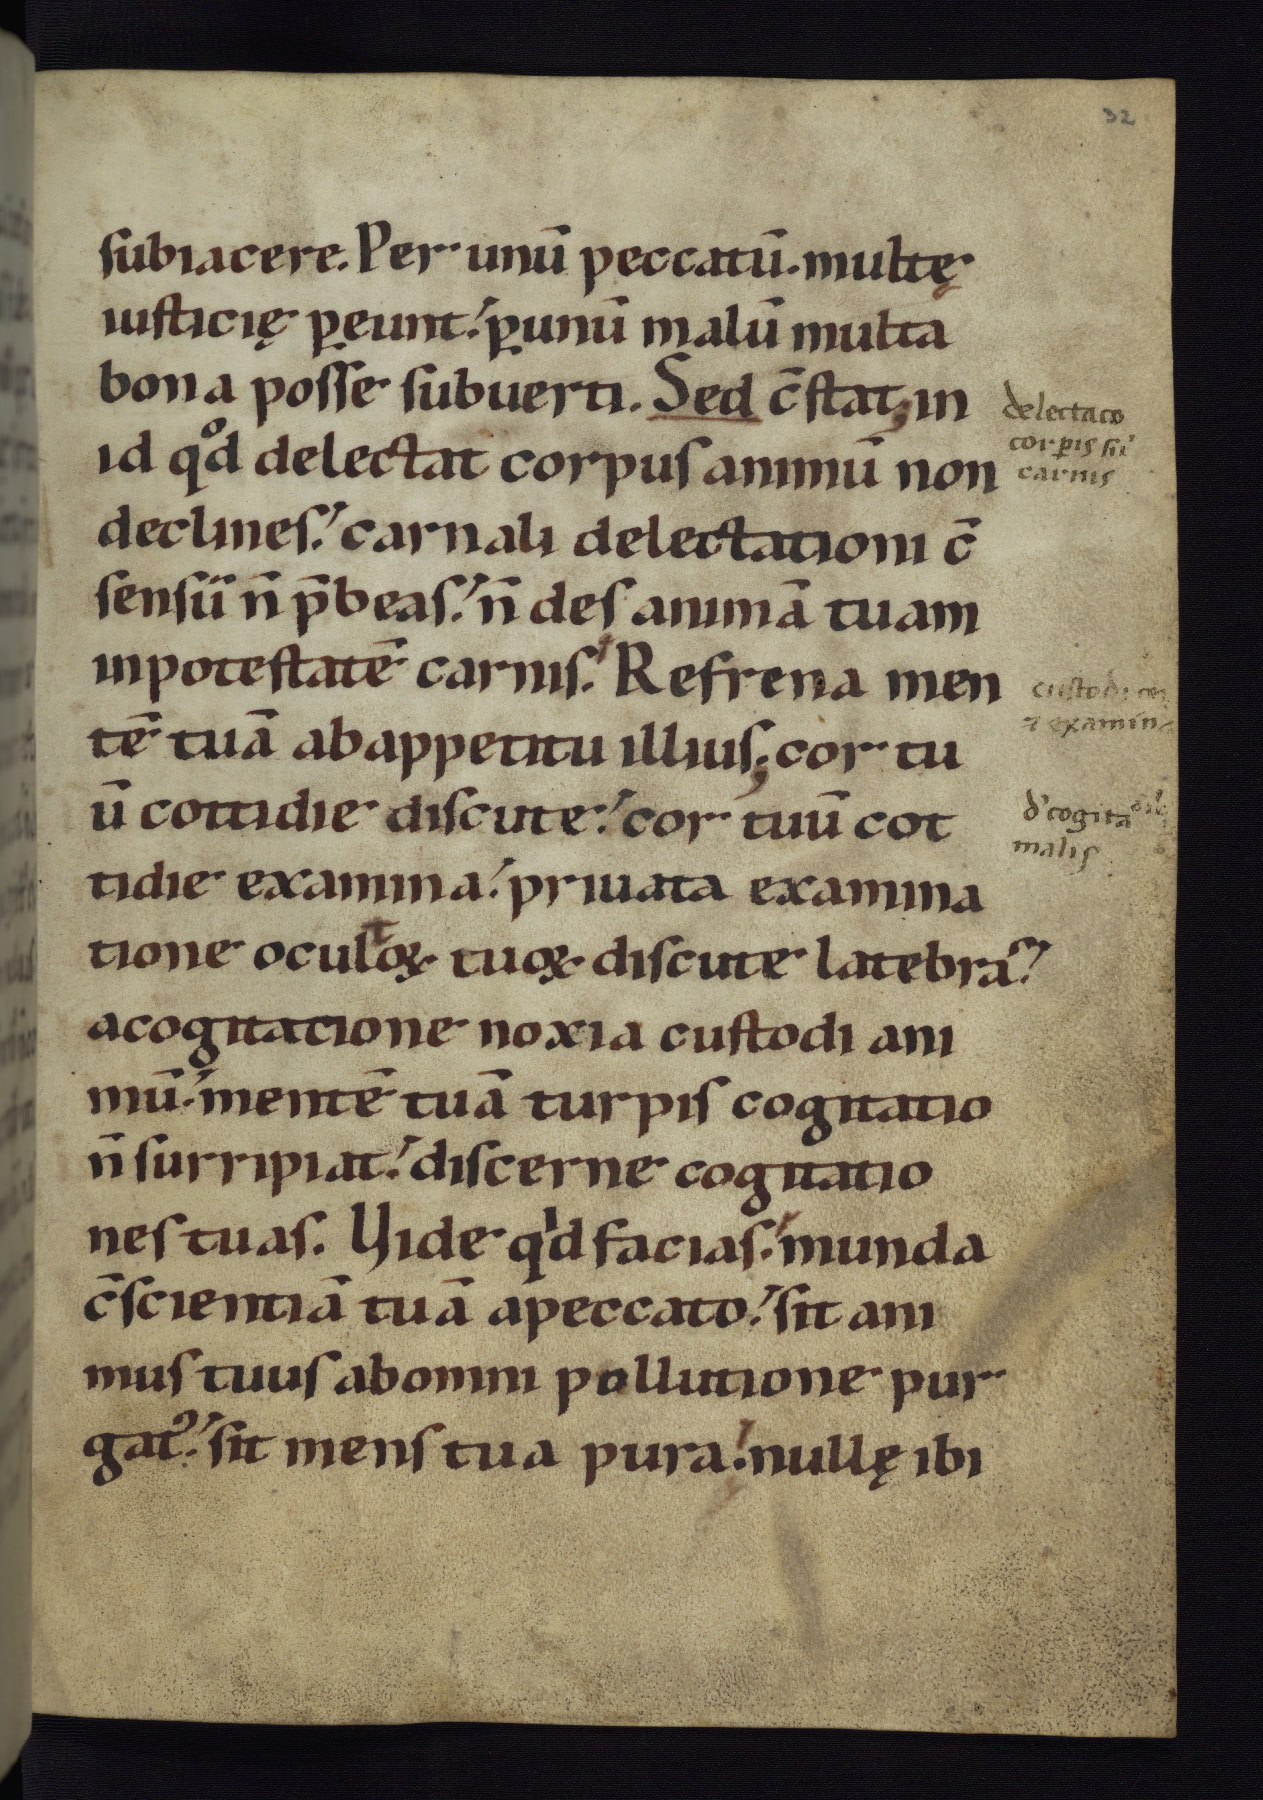 32
subiacere. Per unū peccatū. multę
iusticię ꝑeunt. ꝑunū malū multa
bona posse subuerti. Sed c̄stat, in
id qͦd delectat corpus animū non
declines. carnali delectationi c̄
sensū n̄ p̄beas. n̄ des animā tuam
inpotestatē carnis. Refrena men
tē tuā abappetitu illius; cor tu
ū cottidie discute. cor tuū cot
tidie examina. priuata examina
tione oculoꝝ tuoꝝ discute latebras.
acogitacione noxia custodi ani
mū. mentē tuā turpis cogitatio
n̄ surripiat. discerne cogitatio
nes tuas. Vide qͥd facias. munda
c̄scientiā tuā apeccato. sit ani
mus tuus abomni pollutione pur
gatꝰ. sit mens tua pura. nullę ibi
delectaco
corꝑis
carnis
custodi
⁊ examin
d' cogita
malis